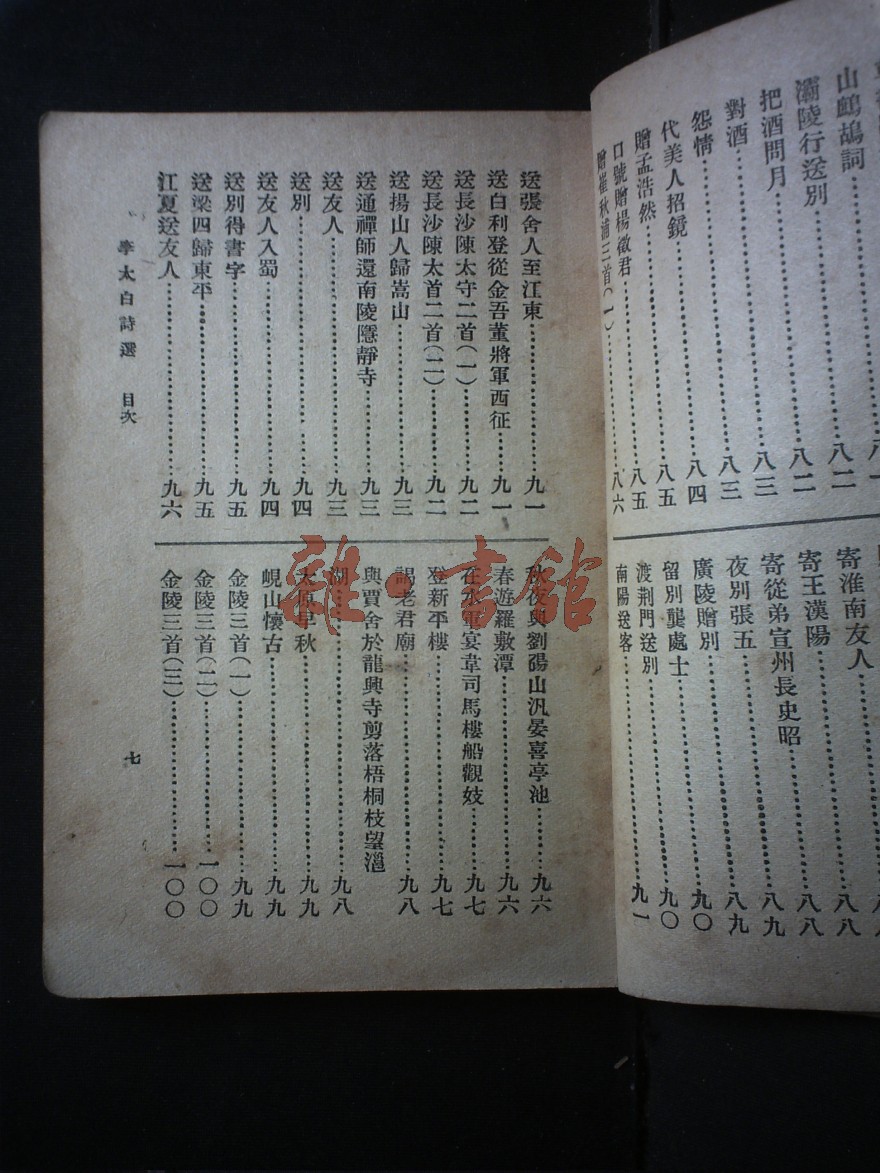 山鷓鴣詞……八二
灞陵行送別……八二
把酒問月……八三
對酒……八三
怨情……八四
代美人招鏡……八五
贈孟浩然……八五
口號贈楊徵君
贈崔秋浦三首(一)……八六
寄淮南友人……八八
寄王漢陽……八八
寄從弟宣州長史昭……八九
夜別張五……八九
廣陵贈別……九〇
留別龔處士……九〇
渡荆門送別……九一
南陽送客
送張舍人至江東……九一
送白利登從金吾董將軍西征……九一
送長沙陳太守二首(一)……九二
送長沙陳太首二首(二)……九二
送揚山人歸嵩山……九三
送通禪師還南陵隱靜寺……九三
送友人……九三
送別……九四
送友人入蜀……九四
送別得書字……九五
送梁四歸東平……九五
江夏送友人……九六
秋夜與劉碭山汎晏喜亭池……九六
春遊羅敷潭……九六
在水軍宴韋司馬樓船觀妓……九七
登新平樓……九七
謁老君廟……九八
與賈舍於龍興寺剪落梧桐枝望㴩
湖……九八
太原早秋……九九
峴山懷古……九九
金陵三首(一)……九九
金陵三首(二)……一〇〇
金陵三首(三)……一〇〇
李太白詩選 目次
七
雜·書館